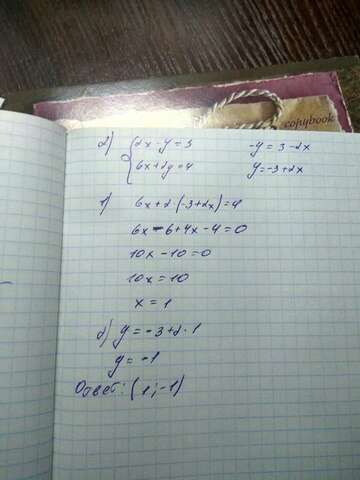 copybook
2) { 2x - y = 3      -y = 3 - 2x
6x + 2y = 4      y = -3 + 2x
1) 6x + 2 · (-3 + 2x) = 4
6x - 6 + 4x - 4 = 0
10x - 10 = 0
10x = 10
x = 1
2) y = -3 + 2 · 1
y = -1
Ответ: (1; -1)